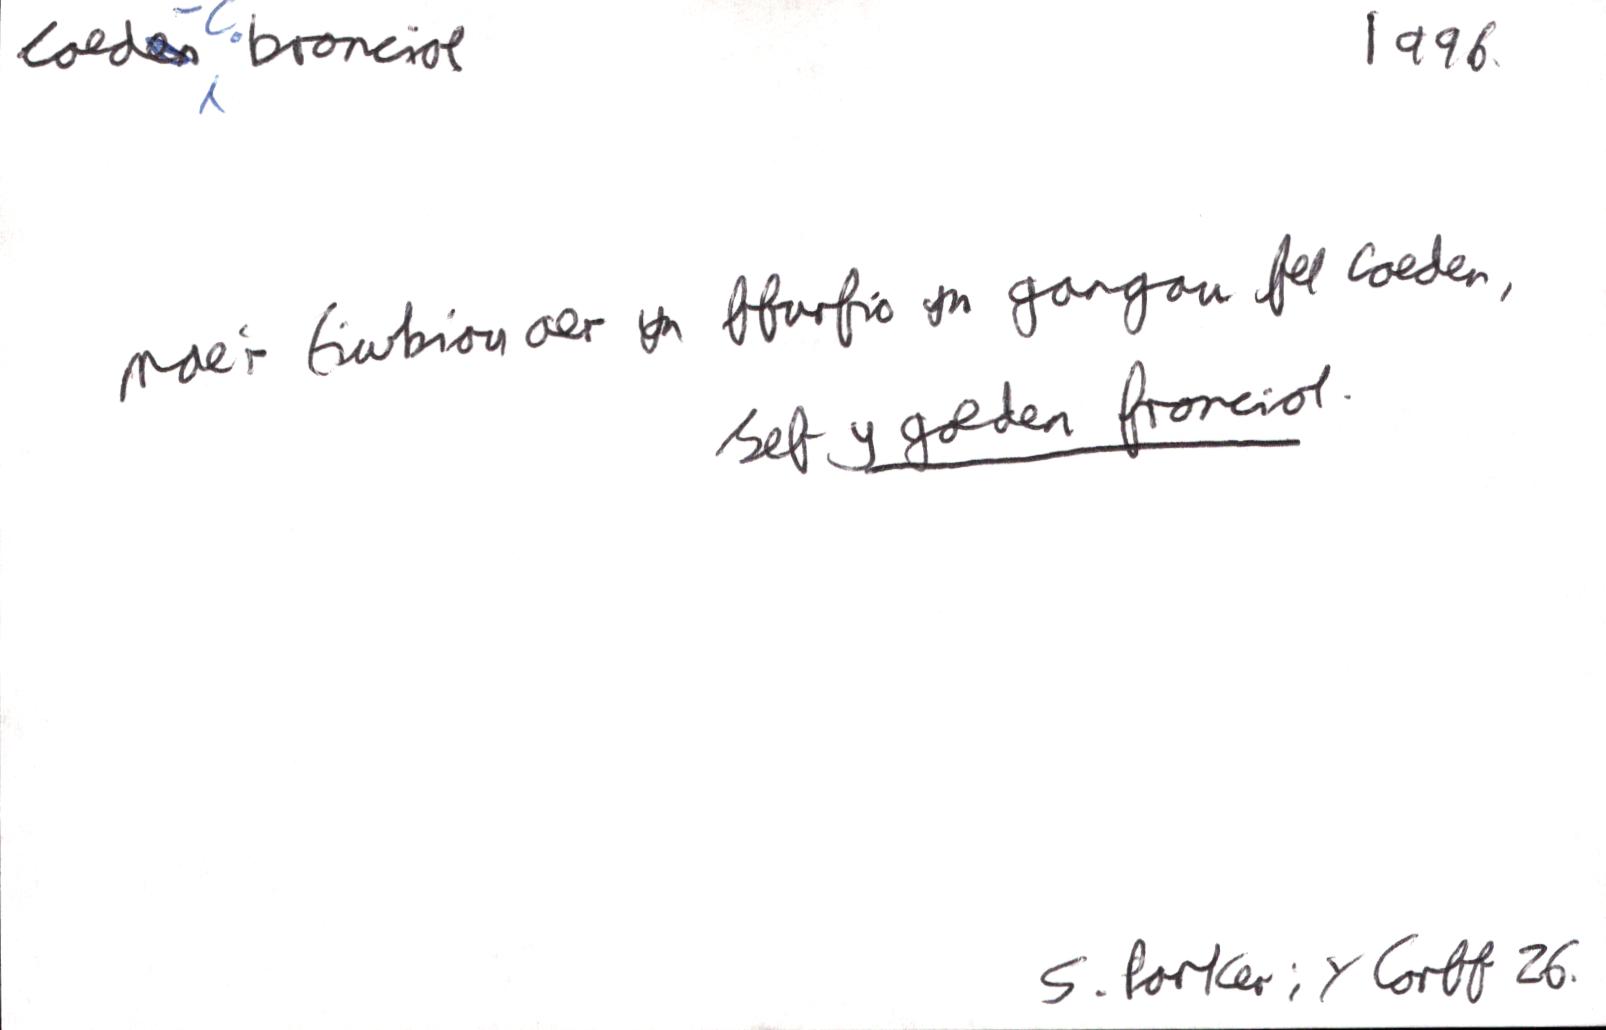 coed -C. bronciol 1996.
Mae'r tiwbiau aer yn ffurfio yn gangau fel coeden,
sef y goeden fronciol.
S. Parker; Y Corff 26.